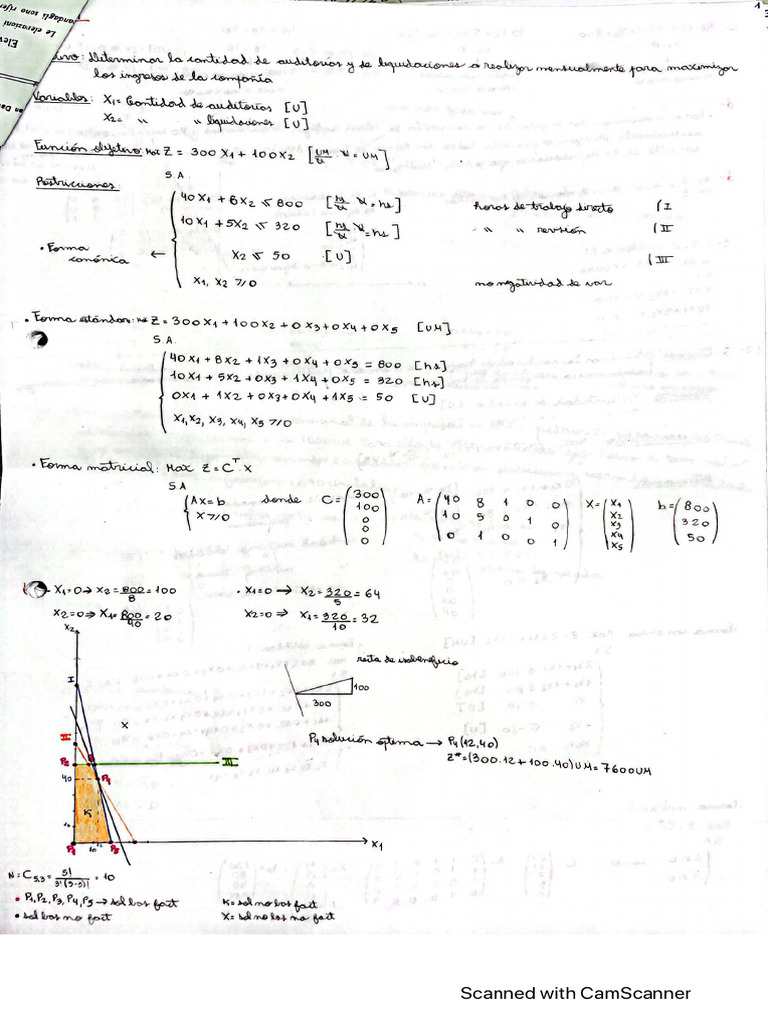 1
tivo: Determinar la cantidad de auditorías y de liquidaciones a realizar mensualmente para maximizar
los ingresos de la compañía
Variables: X1= Cantidad de auditorías [U]
X2= " " liquidaciones [U]
Función objetivo: Max Z = 300X1 + 100X2 [UM/U · U = UM]
S.A.
Restricciones:
40X1 + 8X2 ≤ 800 [hs/U · U = hs] horas de trabajo directo (I
10X1 + 5X2 ≤ 320 [hs/U · U = hs] " " revisión (II
• Forma canónica ← X2 ≤ 50 [U] (III
X1, X2 ≥ 0 no negatividad de var
• Forma estándar: Max Z = 300X1 + 100X2 + 0X3 + 0X4 + 0X5 [UM]
S.A.
40X1 + 8X2 + 1X3 + 0X4 + 0X5 = 800 [hs]
10X1 + 5X2 + 0X3 + 1X4 + 0X5 = 320 [hs]
0X1 + 1X2 + 0X3 + 0X4 + 1X5 = 50 [U]
X1, X2, X3, X4, X5 ≥ 0
• Forma matricial: Max Z = C^T · X
S.A
AX = b donde C = (300 100 0 0 0) A = (40 8 1 0 0 X = (X1 X2 X3 X4 X5) b = (800 320 50)
X ≥ 0 10 5 0 1 0
0 1 0 0 1)
X1=0 → X2 = 800/8 = 100 • X1=0 → X2 = 320/5 = 64
X2=0 ⇒ X1 = 800/40 = 20 X2=0 ⇒ X1 = 320/10 = 32
X2
recta de isobeneficio
I
100
300
X
P4 solución óptima → P4 (12,40)
Z* = (300.12 + 100.40) UM = 7600 UM
II
P2 III
40 P4
K
P1 10 P5 X1
N = C5,3 = 5!/3!(5-3)! = 10
• P1, P2, P3, P4, P5 → sol bas fact K = sol no bas fact
• sol bas no fact X = sol no bas no fact
Scanned with CamScanner